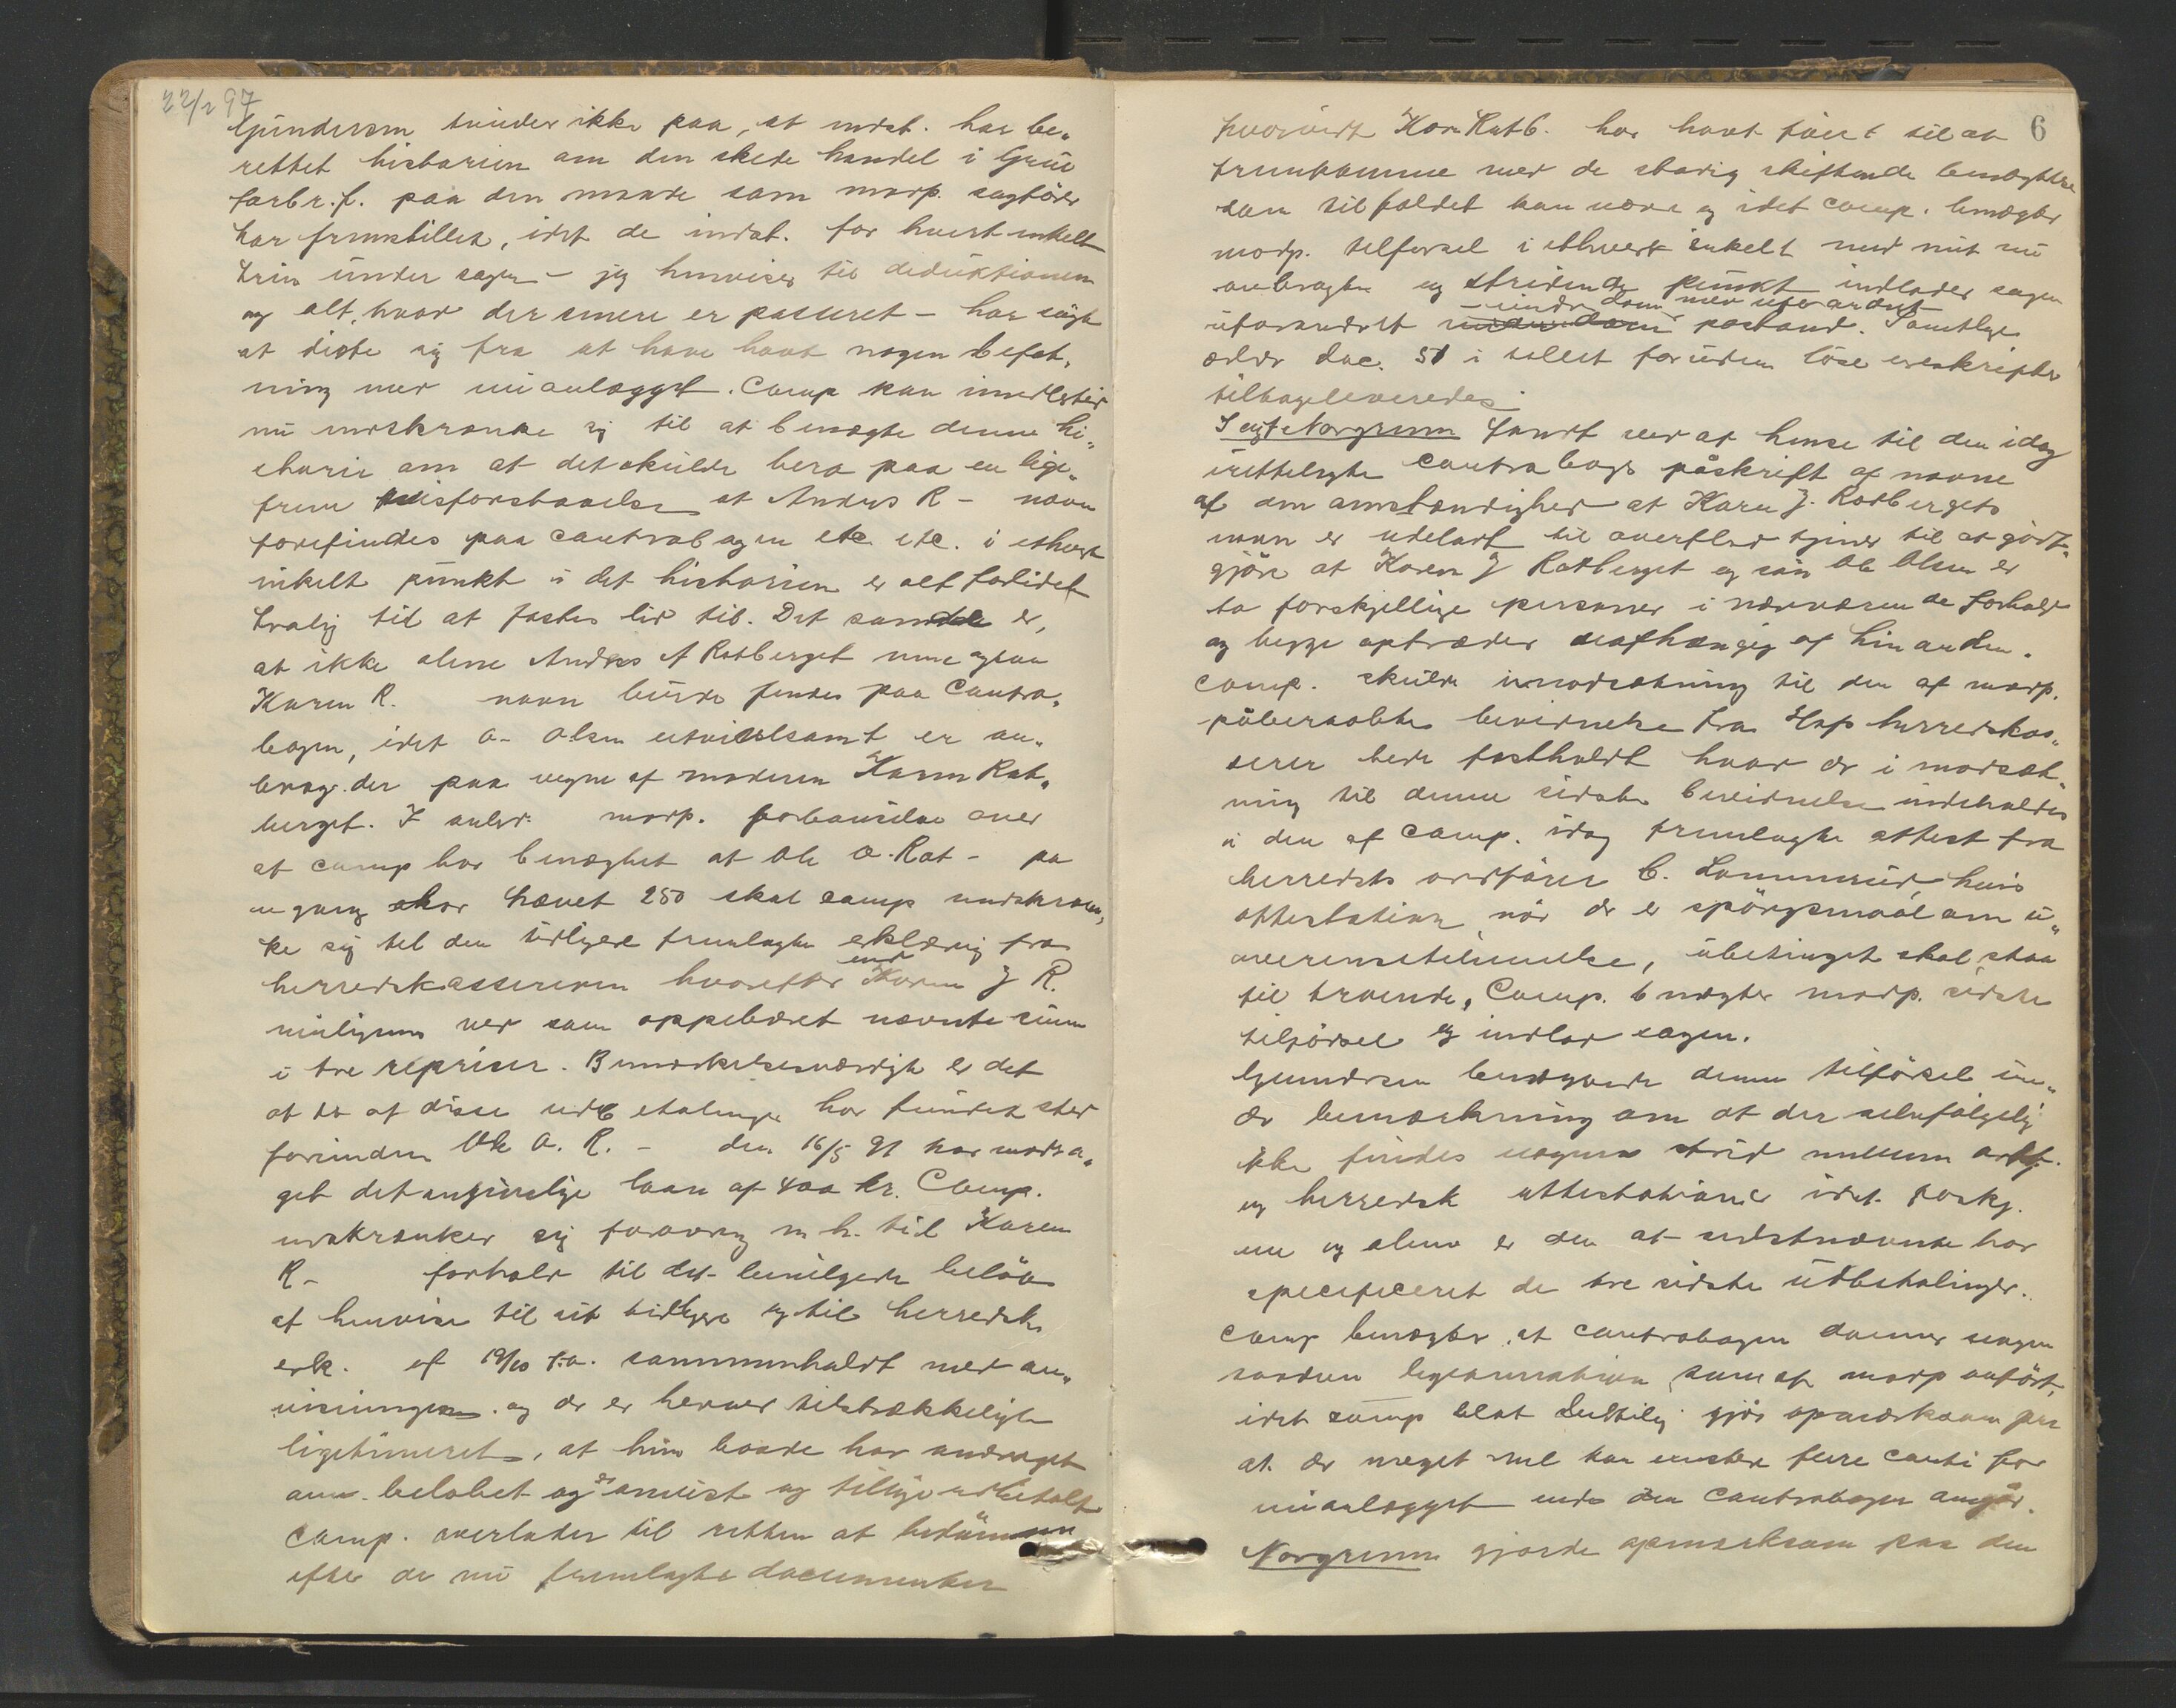 22/2 97
Gundersen ikke paa, at indst. har be„
rettet historien om den skede handel i Grue
forbr.f. paa den maade som modp. sagförer
har fremstillet, idet de indst. for hvert enkelt
trin under sagen – jeg henviser til deduktionen
og alt, hvad der senere er passeret – har sögt
at få sig fra at have havt nogen befat„
ning med uianlægget. Comp kan imidlertid
nu indskrænke sig til at benægte denne hi„
storie om at det skulde bero paa en lige„
frem misforstaaelse at Andreas R – navn
forefindes paa contrabogen etc etc. i ethvert
enkelt punkt i det historien er alt for lidet
trolig til at fæstes lid til. Det samme er,
at ikke alene Andreas A Rotberget men ogsaa
Karen R. navn burde findes paa Contra„
bogen, idet O. Olsen utvivlsomt er an„
brag.der paa vegne af moderen Karen Rot„
berget. I anled. modp. forbauselse over
at comp har benægtet at Ole O. Rot – pa
en gang har hævet 250 skal comp indskræn„
ke sig til den tidligere fremlagte erklæring fra
herredskassereren hvorefter end Karen J R.
vel som oppebæret nævnte sum
i tre repriser. Bemærkelsesværdigt er det
at to af disse udbetalinger har fundet sted
forinden Ole O. R. – den 16/5 91 har modta„
get det angivelige laan af 400 kr. Comp.
indskrænker sig forövrig m.h. til Karen
R – forhold til det beviligede belöb
at henvise til sit tidligere og til herredsk.
erk. af 19/10 f.a. sammenholdt med an„
visningen. og der er herved tilstrækkeligt
ligetimeret, at hun baade har andraget
om belöbet og anvist og tillige udbetalt
Comp. overlader til retten at bedömme
efter de nu fremlagte documenter
6
hvorvidt Karen Rotb. har havt til at
fremkomme med de stadig skiftende benægtelser
som tilfældet kan være og idet comp. benægter
modp. tilförsel i ethvert enkelt med mit nu
anbragte og stridende punkt indlader sagen
– under dom med uforandret
uforandret under dom paastand. Samtlige
ældre doc. 51 i tallet foruden löse exeskripter
tilbageleveredes.
I eyt Norgrenn fandt ved at hense til den idag
irettelagte contrabogs påskrift af navne
af den omstændighed at Karen J. Rotbergets
navn er udeladt til overflod tjener til at godt„
gjöre at Karen J Rotberget og sön Ole Olsen er
to forskjellige personer i nærværende forhold
og begge optræder uafhængig af hinanden.
Comp. skulde i modsætning til den af modp.
påberaabte bevidnelse fra Hof herredskas„
serer bede fastholdt hvad der i modsæt„
ning til denne sidste bevidnelse indeholdes
i den af comp. idag fremlagte attest fra
herredets ordförer C. Lommerud, hvis
attestation, når der er spörgsmaal om u„
overensstemmelse, ubetinget skal staa
til troende, Comp. benægter modp. sidste
tilförsel og indlod sagen.
Gundersen benægtede denne tilförsel un„
der bemærkning om at der selvfölgelig
ikke findes nogen strid mellem ordf.
og herredsk attestationer idet forskj.
ene og alene er den at sidstnævnte har
specificeret de tre sidste udbetalinger.
Comp benægter at contrabogen danner nogen
saadan legitimation som af modp anfört,
idet comp blot gjör opmærksom paa
at der meget vel kan existere flere conti for
uianlægget end den contrabogen angår.
Norgrenn gjorde opmærksom paa den